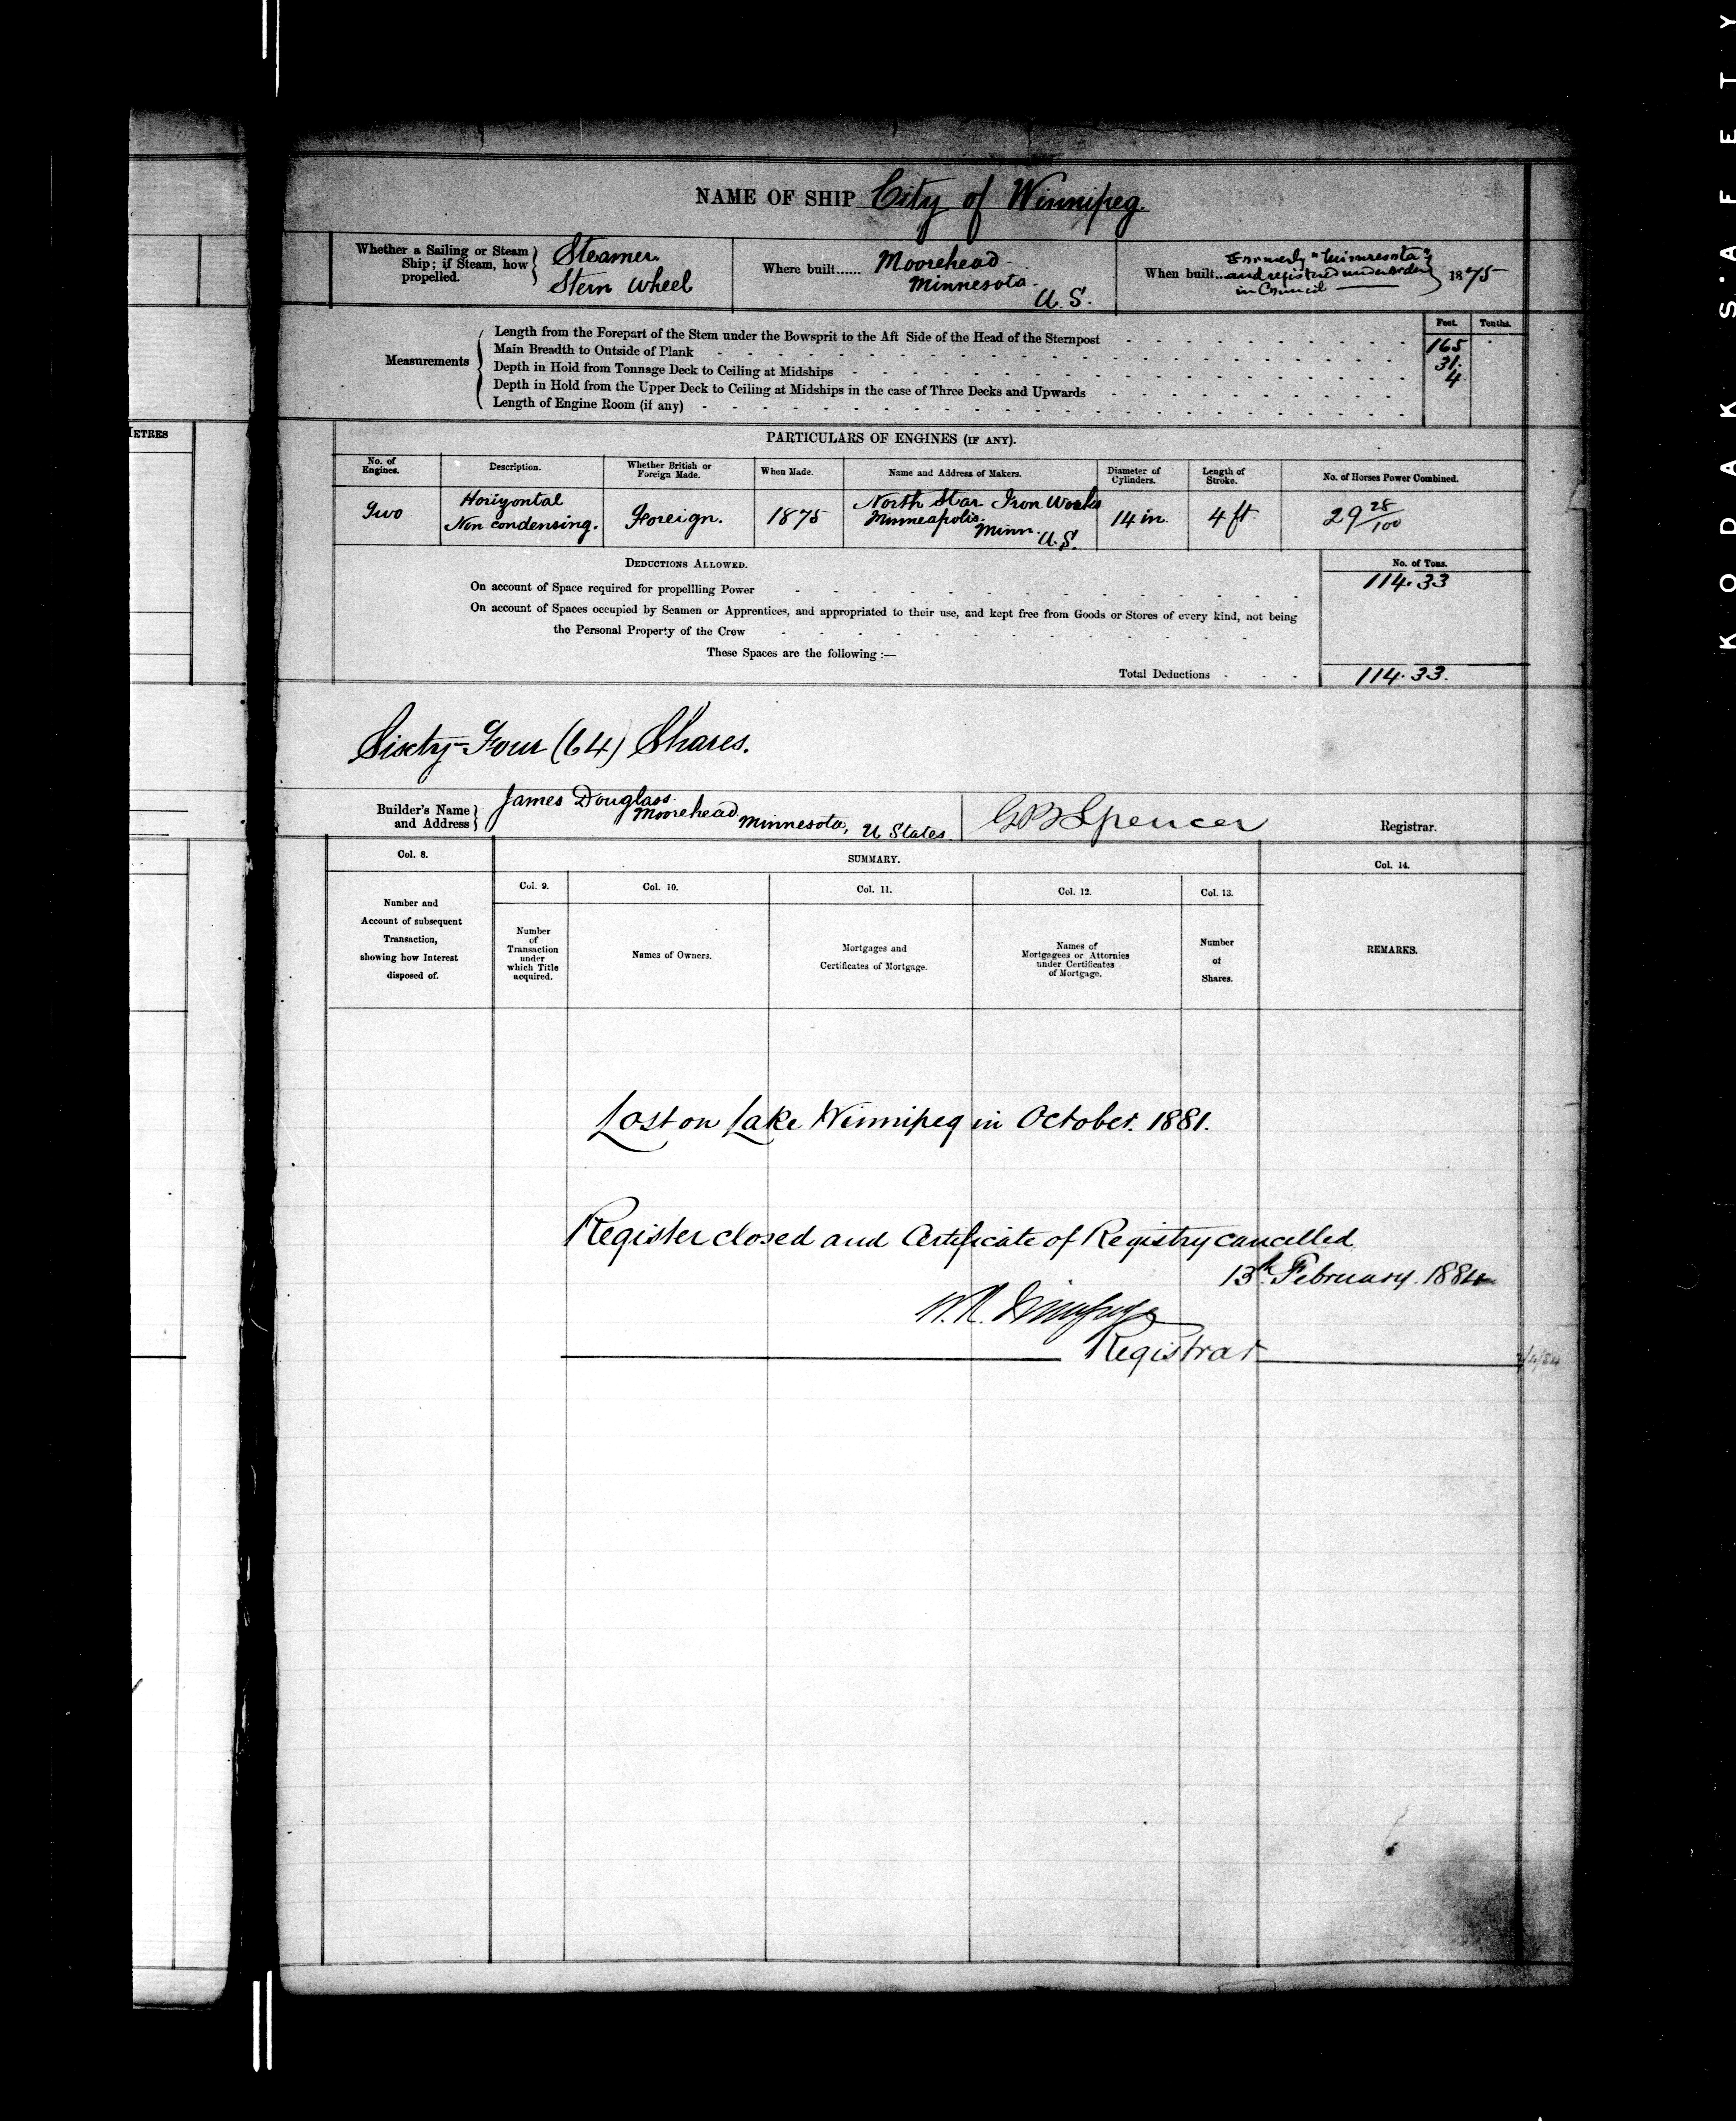 NAME OF SHIP City of Winnipeg.
Whether a Sailing or Steam Ship; if Steam, how propelled. } Steamer. Stern Wheel
Where built...... Moorehead Minnesota. U.S.
When built... Formerly "Minnesota" and registered under Order in Council } 1875
Feet. Tenths.
Measurements
Length from the Forepart of the Stem under the Bowsprit to the Aft Side of the Head of the Sternpost 165
Main Breadth to Outside of Plank 31.
Depth in Hold from Tonnage Deck to Ceiling at Midships 4.
Depth in Hold from the Upper Deck to Ceiling at Midships in the case of Three Decks and Upwards
Length of Engine Room (if any)
METRES
PARTICULARS OF ENGINES (IF ANY).
No. of Engines. Description. Whether British or Foreign Made. When Made. Name and Address of Makers. Diameter of Cylinders. Length of Stroke. No. of Horses Power Combined.
Two Horizontal Non condensing. Foreign. 1875 North Star Iron Works Minneapolis. Minn. U.S. 14 in. 4 ft. 29 28/100
DEDUCTIONS ALLOWED. No. of Tons.
On account of Space required for propellling Power 114.33
On account of Spaces occupied by Seamen or Apprentices, and appropriated to their use, and kept free from Goods or Stores of every kind, not being
the Personal Property of the Crew
These Spaces are the following :—
Total Deductions 114.33.
Sixty-Four (64) Shares.
Builder's Name and Address } James Douglass. Moorehead Minnesota, U States
G B Spencer Registrar.
Col. 8. SUMMARY. Col. 14.
Col. 9. Col. 10. Col. 11. Col. 12. Col. 13.
Number and Account of subsequent Transaction, showing how Interest disposed of.
Number of Transaction under which Title acquired.
Names of Owners.
Mortgages and Certificates of Mortgage.
Names of Mortgagees or Attornies under Certificates of Mortgage.
Number of Shares.
REMARKS.
Lost on Lake Winnipeg in October. 1881.
Register closed and Certificate of Registry cancelled
13th February. 1884
Registrar
KODAK S·AFETY